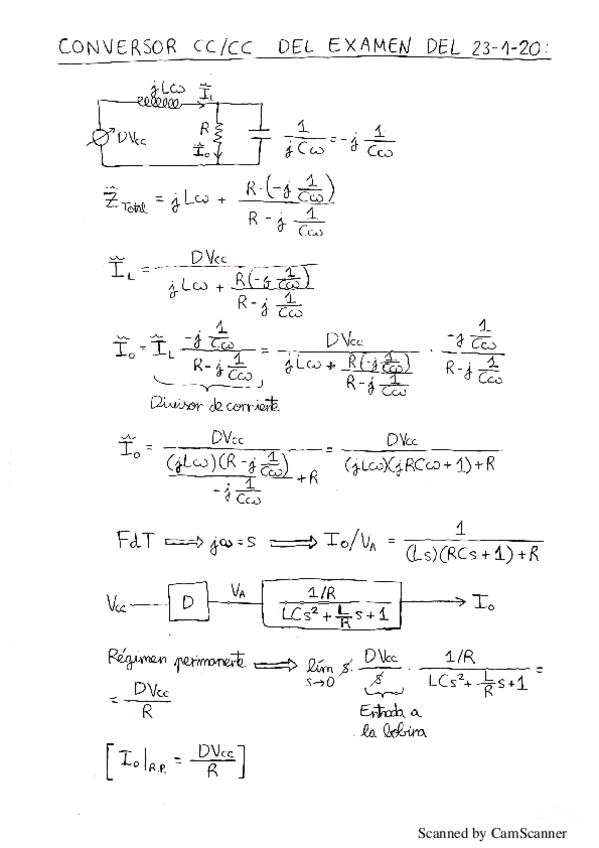 CONVERSOR CC/CC DEL EXAMEN DEL 23-1-20:
jLω Ĩ_L
DVcc R Ĩ_o 1/(jCω) = -j 1/(Cω)
Z̃_Total = jLω + R·(-j 1/(Cω)) / (R - j 1/(Cω))
Ĩ_L = DVcc / (jLω + R(-j 1/(Cω)) / (R - j 1/(Cω)))
Ĩ_o = Ĩ_L (-j 1/(Cω)) / (R - j 1/(Cω)) = DVcc / (jLω + R(-j 1/(Cω)) / (R - j 1/(Cω))) · (-j 1/(Cω)) / (R - j 1/(Cω))
Divisor de corriente
Ĩ_o = DVcc / ((jLω)(R - j 1/(Cω)) / (-j 1/(Cω)) + R) = DVcc / ((jLω)(jRCω + 1) + R)
FdT ⟹ jω = s ⟹ I_o/V_A = 1 / ((Ls)(RCs + 1) + R)
Vcc D V_A (1/R) / (LCs² + (L/R)s + 1) → I_o
Régimen permanente ⟹ lím s→0 s · DVcc/s · (1/R) / (LCs² + (L/R)s + 1) =
= DVcc/R
Entrada a
la bobina
[I_o|_R.P. = DVcc/R]
Scanned by CamScanner